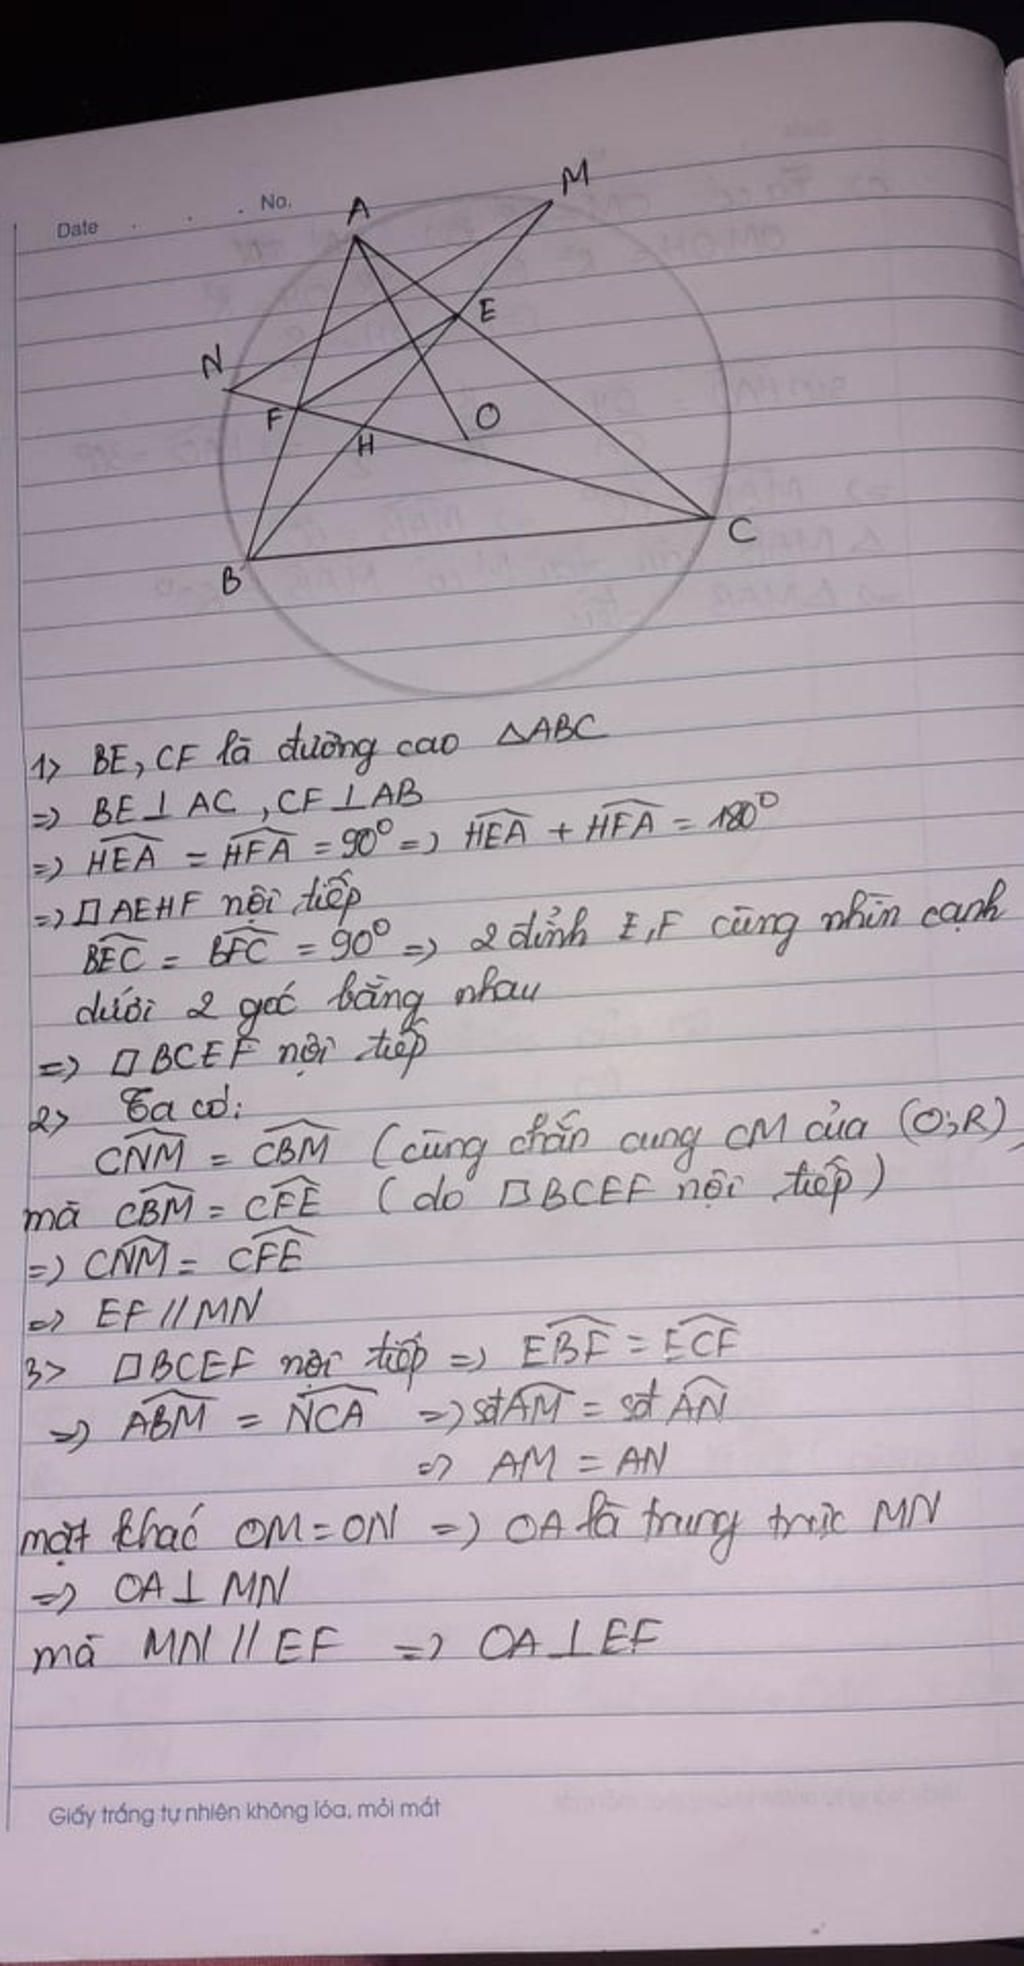 Date . . . No.
A
M
N
E
F
H
O
B
C
1> BE, CF là đường cao △ABC
=> BE⊥AC, CF⊥AB
=> \widehat{HEA} = \widehat{HFA} = 90° => \widehat{HEA} + \widehat{HFA} = 180°
=> □AEHF nội tiếp
\widehat{BEC} = \widehat{BFC} = 90° => 2 đỉnh E,F cùng nhìn cạnh
dưới 2 góc bằng nhau
=> □BCEF nội tiếp
2> Ta có:
\widehat{CNM} = \widehat{CBM} (cùng chắn cung CM của (O;R),
mà \widehat{CBM} = \widehat{CFE} (do □BCEF nội tiếp)
=> \widehat{CNM} = \widehat{CFE}
=> EF // MN
3> □BCEF nội tiếp => \widehat{EBF} = \widehat{ECF}
=> \widehat{ABM} = \widehat{NCA} => sđ\widehat{AM} = sđ\widehat{AN}
=> AM = AN
mặt khác OM = ON => OA là trung trực MN
=> OA⊥MN
mà MN // EF => OA⊥EF
Giấy trắng tự nhiên không lóa, mỏi mắt